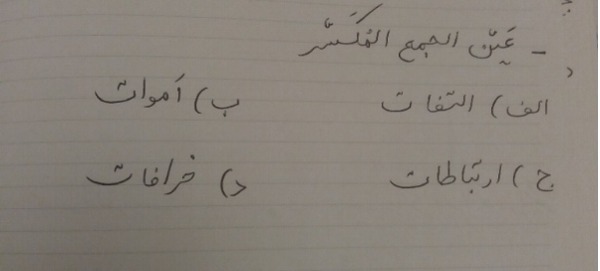 - عَيِّن الجمع المُكَسَّر
الف) التفات ب) أموات
ج) ارتباطات د) خرافات